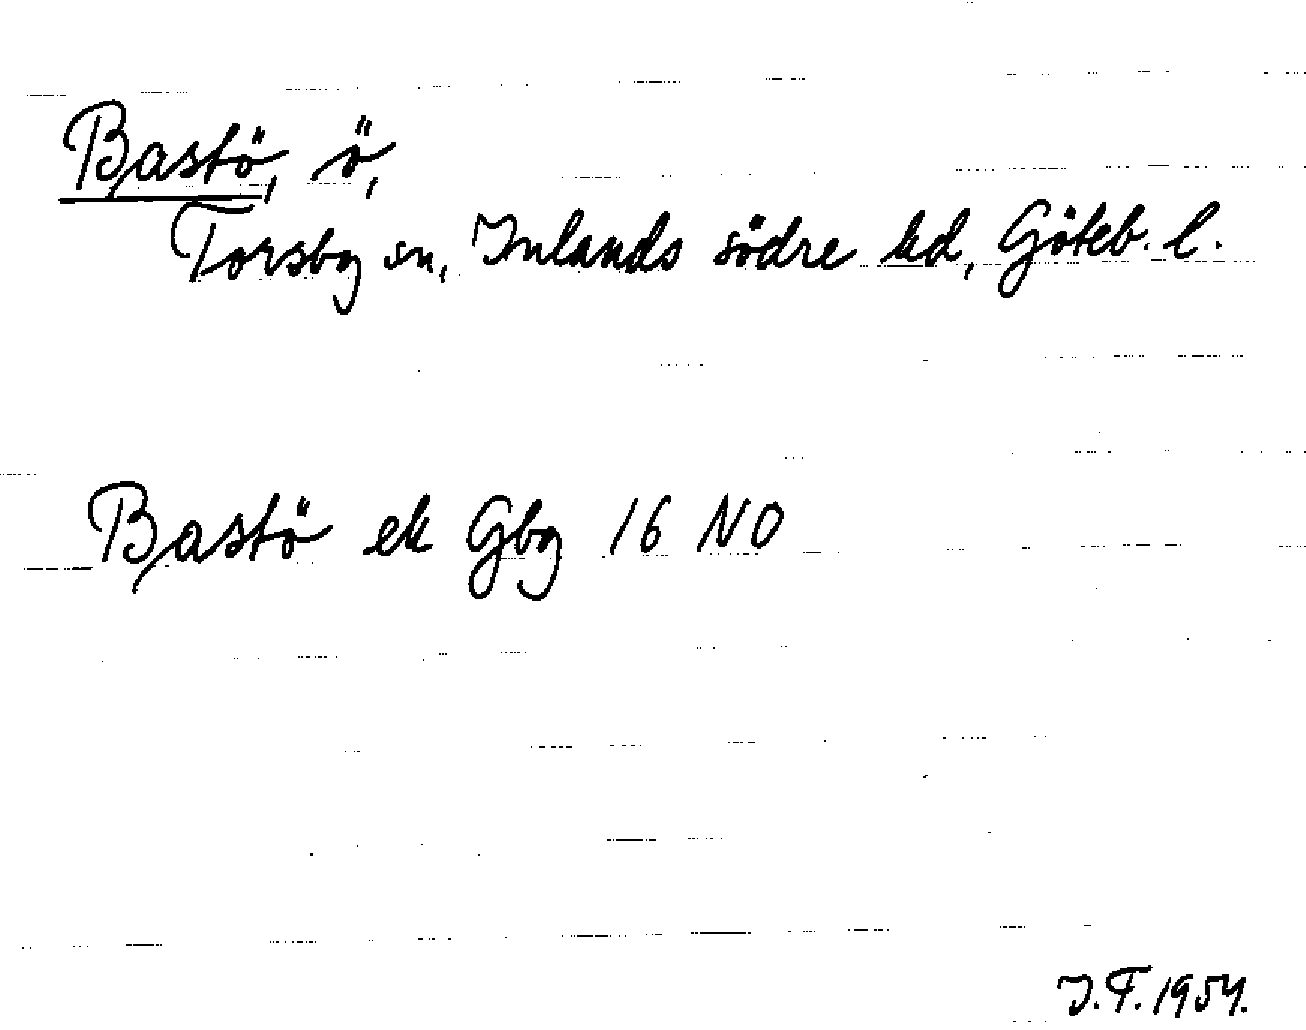 Bastö, ö,
Torsby sn, Inlands södre hd, Göteb. l.
Bastö ek Gbg 16 NO
I.F. 1954.